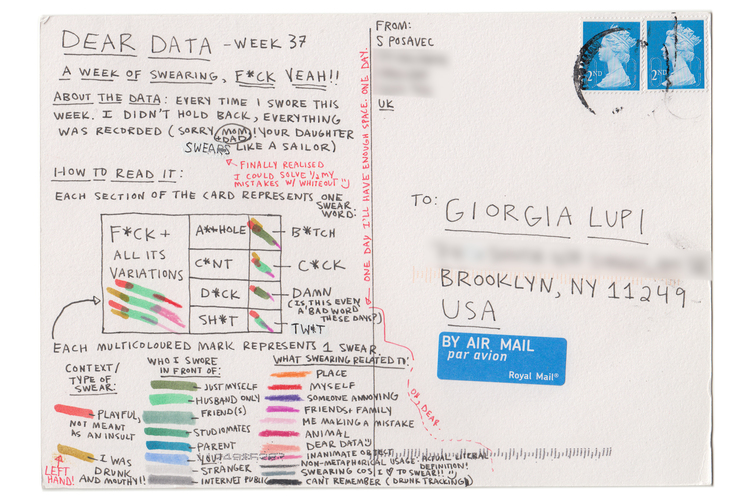 DEAR DATA - WEEK 37
A WEEK OF SWEARING, F*CK YEAH!!
ABOUT THE DATA: EVERY TIME I SWORE THIS
WEEK. I DIDN'T HOLD BACK, EVERYTHING
WAS RECORDED (SORRY MOM + DAD! YOUR DAUGHTER
SWEARS LIKE A SAILOR)
FINALLY REALISED
I COULD SOLVE ½ MY
MISTAKES W/ WHITEOUT
HOW TO READ IT:
EACH SECTION OF THE CARD REPRESENTS ONE
SWEAR
WORD:
F*CK +
ALL ITS
VARIATIONS
A**HOLE
B*TCH
C*NT
C*CK
D*CK
DAMN
(IS THIS EVEN
A 'BAD WORD'
THESE DAYS?)
SH*T
TW*T
EACH MULTICOLOURED MARK REPRESENTS 1 SWEAR.
CONTEXT/
TYPE OF
SWEAR:
PLAYFUL,
NOT MEANT
AS AN INSULT
I WAS
DRUNK
AND MOUTHY!!
LEFT
HAND!
WHO I SWORE
IN FRONT OF:
JUST MYSELF
HUSBAND ONLY
FRIEND(S)
STUDIOMATES
PARENT
YOU!
STRANGER
INTERNET PUBLIC
WHAT SWEARING RELATED TO:
PLACE
MYSELF
SOMEONE ANNOYING
FRIENDS + FAMILY
ME MAKING A MISTAKE
ANIMAL
DEAR DATA
INANIMATE OBJECT
NON-METAPHORICAL USAGE: ACTUAL LITERAL
DEFINITION!
SWEARING COS I ♡ TO SWEAR!!
CAN'T REMEMBER (DRUNK TRACKING)
ONE DAY I'LL HAVE ENOUGH SPACE. ONE DAY.
OH, DEAR.
FROM:
S POSAVEC
UK
2ND
2ND
TO: GIORGIA LUPI
BROOKLYN, NY 11249
USA
BY AIR MAIL
par avion
Royal Mail®